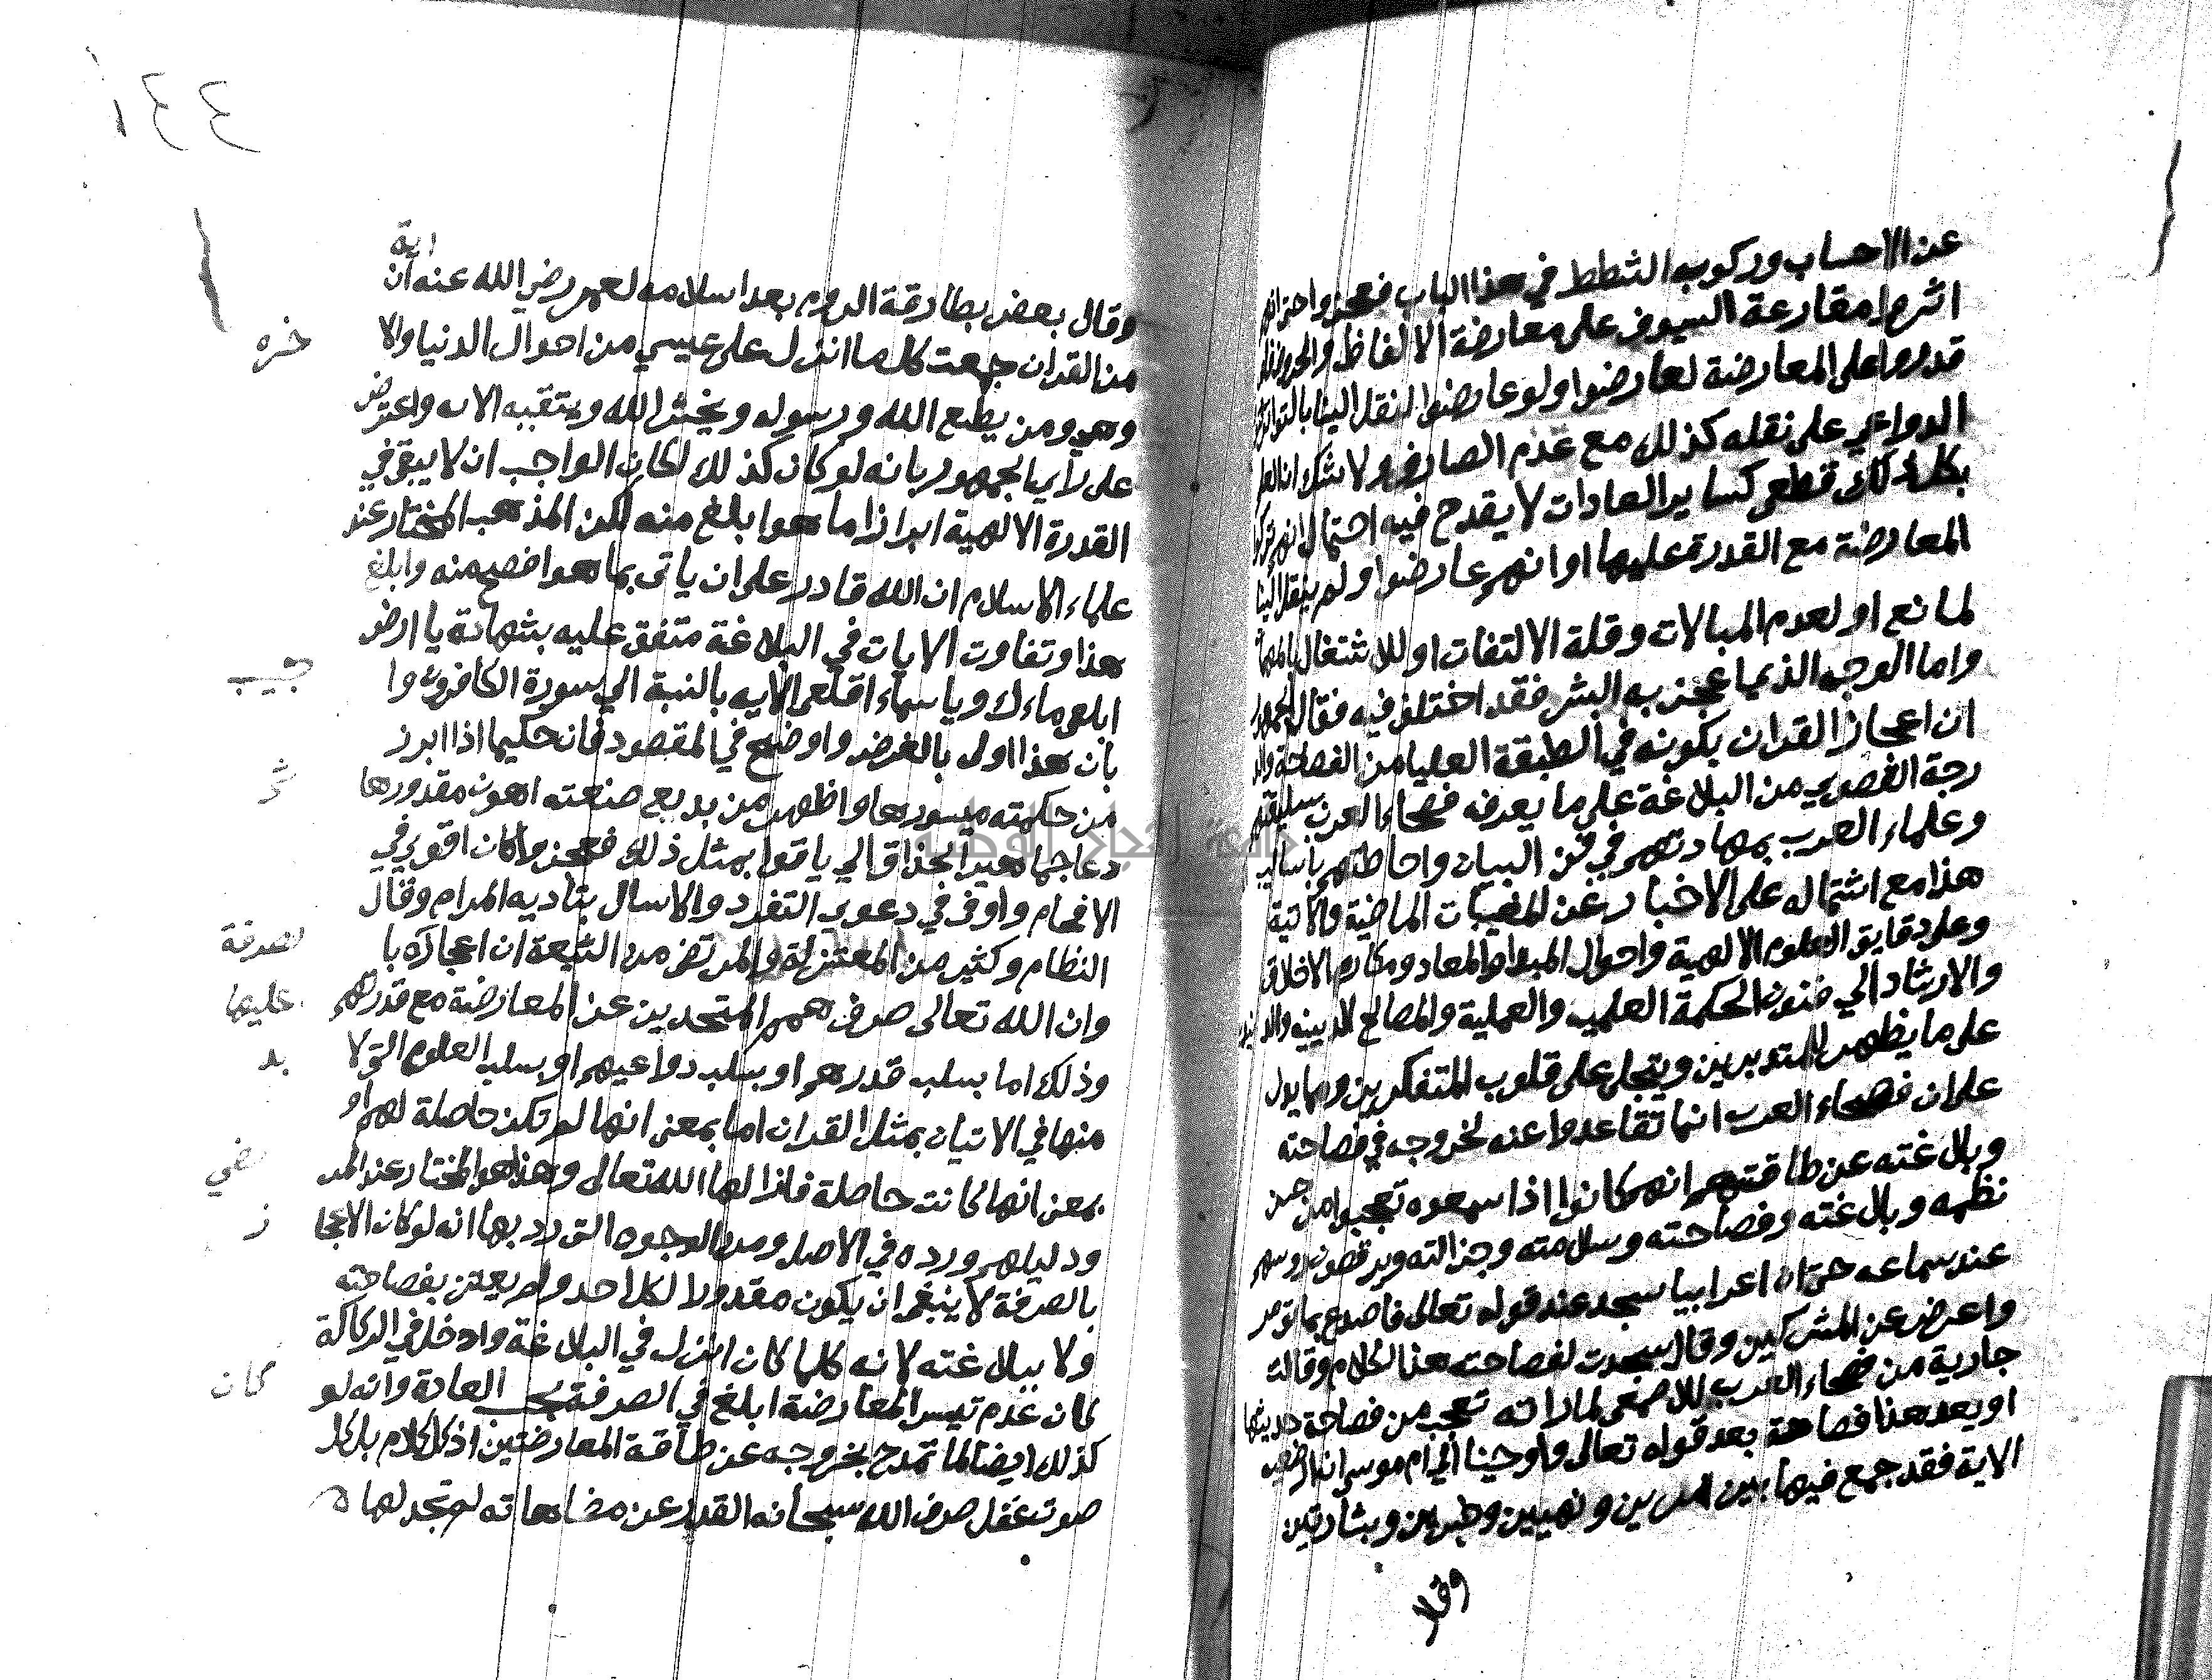 عن الاحساب وركوب الشطط في هذا الباب فعجزوا حتى انهم
اثروا مقارعة السيوف على معارضة الالفاظ والحروف فلو
قدروا على المعارضة لعارضوا ولو عارضوا لنقل الينا بالتواتر
الدواعي على نقله كذلك مع عدم الصارف ولا شك ان العلم
بكل ذلك قطعي كساير العادات لا يقدح فيه احتمال انهم تركوا
المعارضة مع القدرة عليها او انهم عارضوا ولم ينقل الينا
لمانع او لعدم المبالات وقلة الالتفات او للاشتغال بالمهمات
واما الوجه الذي اعجز به البشر فقد اختلف فيه فقال الجمهور
ان اعجاز القران بكونه في الطبقة العليا من الفصاحة والد
رجة القصوي من البلاغة على ما يعرفه فصحاء العرب بسليقتهم
وعلماء العرب بمهارتهم في فن البيان واحاطتهم باساليب
هذا مع اشتماله على الاخبار عن المغيبات الماضية والاتية
وعلى دقايق العلوم الالهية واحوال المبدا والمعاد ومكارم الاخلاق
والارشاد الي فنون الحكمة العلمية والعملية والمصالح الدينية والدنيوية
على ما يظهر للمتدبرين ويتجلى على قلوب المتفكرين ومما يدل
على ان فصحاء العرب انما تقاعدوا عنه لخروجه في فصاحته
وبلاغته عن طاقتهم انهم كانوا اذا سمعوه تعجبوا من حسن
نظمه وبلاغته وفصاحته وسلامته وجزالته ويرقصون روسهم
عند سماعه حتى ان اعرابيا سجد عند قوله تعالى فاصدع بما تومر
واعرض عن المشركين وقال سجدت لفصاحته هذا الكلام وقالت
جارية من فصحاء العرب للاصمعي لما راته تعجب من فصاحة حديثها
او يعد هذا فصاحة بعد قوله تعالى واوحينا الي ام موسى ان ارضعيه
الاية فقد جمع فيها بين امرين ونهيين وخبرين وبشارتين
وقال
٤٤١
اية
وقال بعض بطارقة الروم بعد اسلامه لعمر رضي الله عنه ان
من القران جمعت كل ما انزل على عيسي من احوال الدنيا والا
خره
وهي ومن يطع الله ورسوله ويخش الله ويتقيه الايه واعترض
على راي الجمهور بانه لو كان كذلك لكان الواجب ان لا يبقى في
القدرة الالهية ابراز ما هو ابلغ منه لكن المذهب المختار عند
علماء الاسلام ان الله قادر على ان ياتي بما هو افصح منه وابلغ
هذا وتفاوت الايات في البلاغة متفق عليه بشهادة يا ارض
ابلعي ماءك ويا سماء اقلعي الايه بالنسبة الي سورة الكافرون وا
جيب
بان هذا اولى بالغرض واوضح في المقصود فان حكيما اذا ابرز
من حكمته ميسورها واظهر من بديع صنعته اهون مقدورها
ثم
دعا جماهير الحذاق الي ياتوا بمثل ذلك فعجزوا كان اقوي في
الافحام واوفى في دعوي التفرد والاسال بتاديه المرام وقال
النظام وكثير من المعتزلة والمرتضى من الشيعة ان اعجازه با
لصرفة
وان الله تعالى صرف همم المتحدين عن المعارضة مع قدرتهم
عليها
وذلك اما بسلب قدرهم او بسلب دواعيهم او بسلب العلوم التي لا
بد
منها في الاتيان بمثل القران اما بمعنى انها لم تكن حاصلة لهم او
بمعنى انها كانت حاصلة فازالها الله تعالى وهذا هو المختار عند المر
تضي
ودليلهم ورده في الاصل ومن الوجوه التي رد بها انه لو كان الاعجا
ز
بالصرفة لا ينبغي ان يكون مقدورا لكل احد ولم يعتن بفصاحته
ولا ببلاغته لانه كلما كان انزل في البلاغة وادخل في الركاكة
كان
لكان عدم تيسر المعارضة ابلغ في الصرفة بحسب العادة وانه لو
كذلك ايضا لما تمدح بخروجه عن طاقة المعارضتين اذ كل كلام بل كل
صوت غفل صرف الله سبحانه القدر عن مضاهاته لم تجد لها